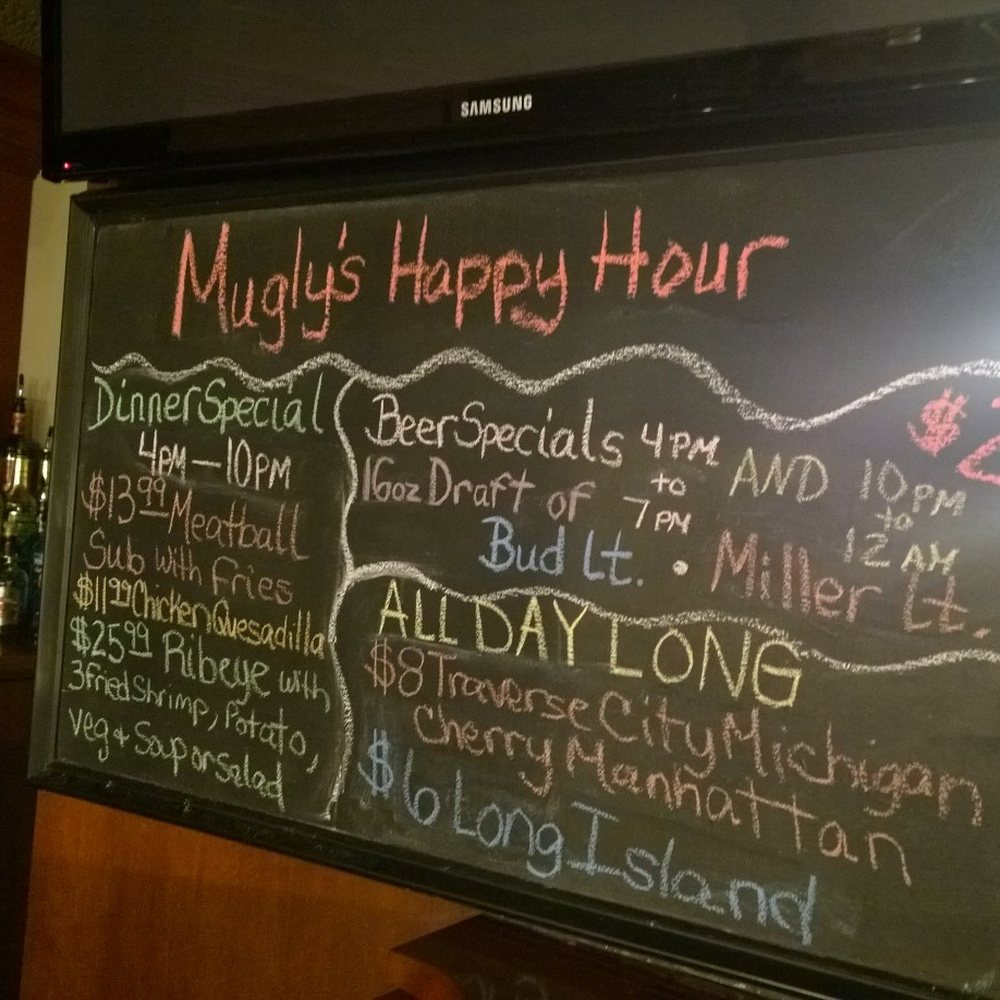 SAMSUNG
Mugly's Happy Hour
Dinner Special
4PM — 10PM
$13.99 Meatball
Sub with fries
$11.99 Chicken Quesadilla
$25.99 Ribeye with
3 fried shrimp, potato,
veg + Soup or salad
Beer Specials 4PM to 7PM AND 10PM to 12AM
16oz Draft of
Bud Lt. • Miller Lt.
$2
ALL DAY LONG
$8 Traverse City Michigan
Cherry Manhattan
$6 Long Island